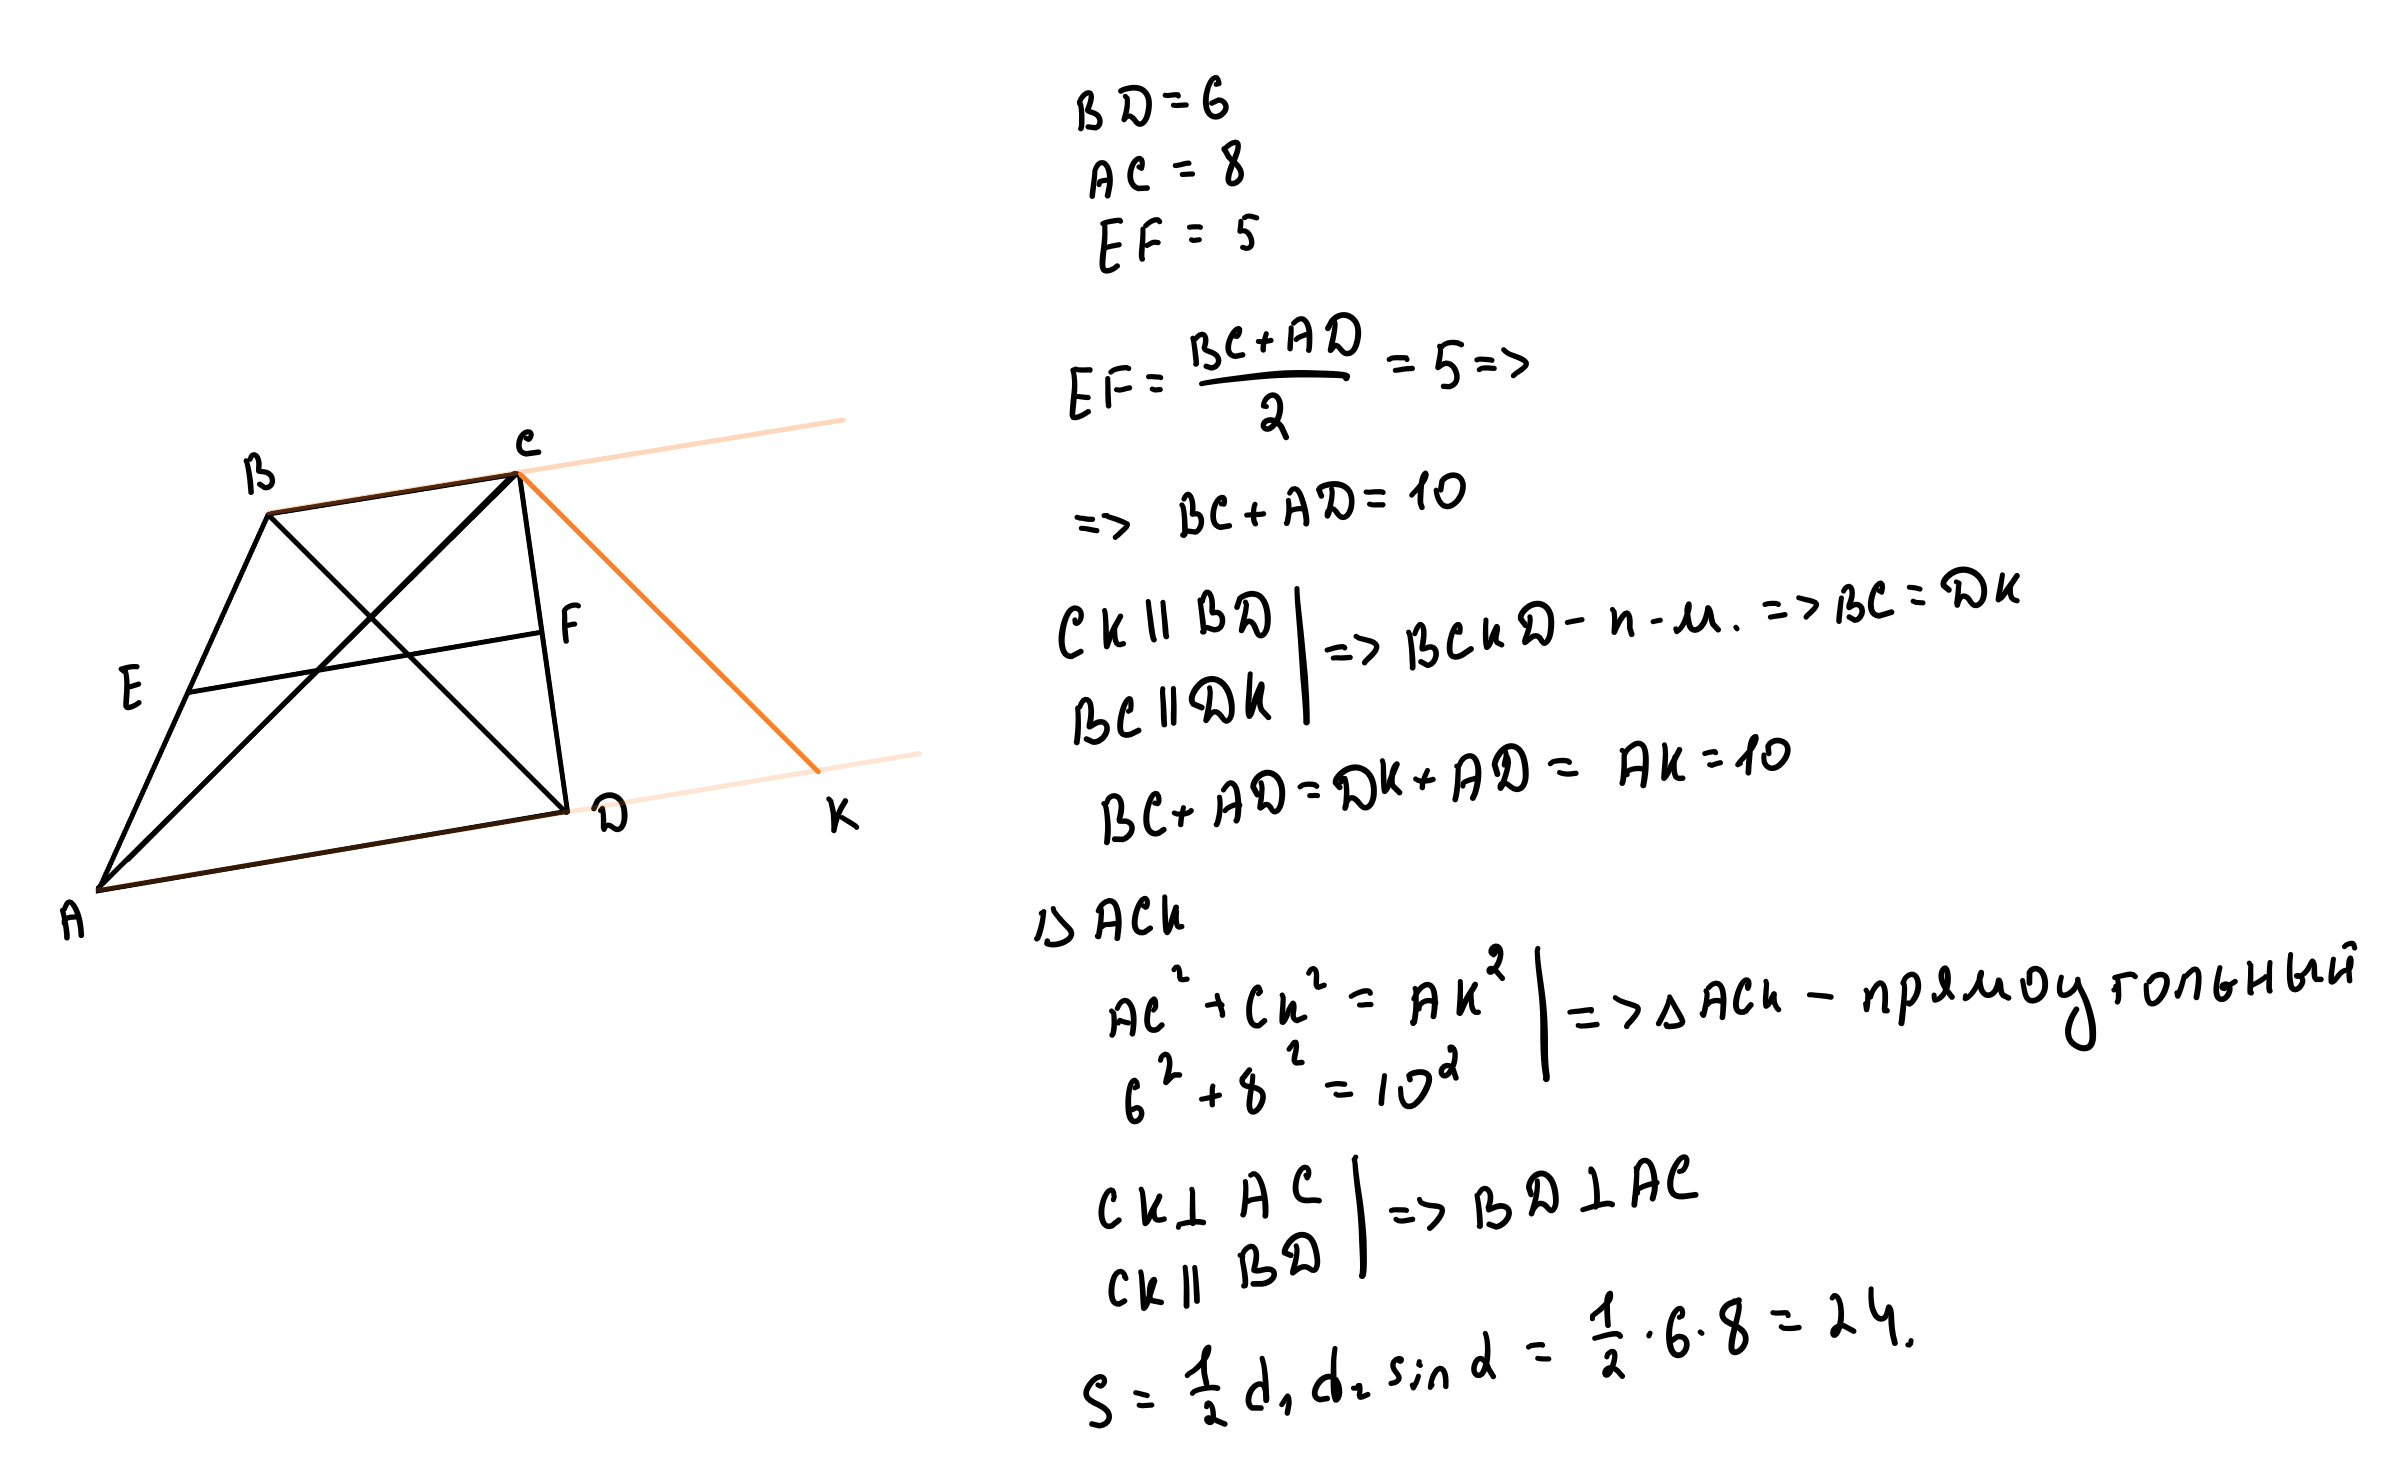 B
C
E
F
A
D
K
BD=6
AC=8
EF=5
EF=\frac{BC+AD}{2}=5=>
=> BC+AD=10
CK||BD
BC||DK
=> BCKD-п-м. => BC=DK
BC+AD=DK+AD=AK=10
Δ ACK
AC²+CK²=AK²
6²+8²=10²
=> Δ ACK - прямоугольный
CK⊥AC
CK||BD
=> BD⊥AC
S=\frac{1}{2}d₁d₂ sin α=\frac{1}{2}·6·8=24.